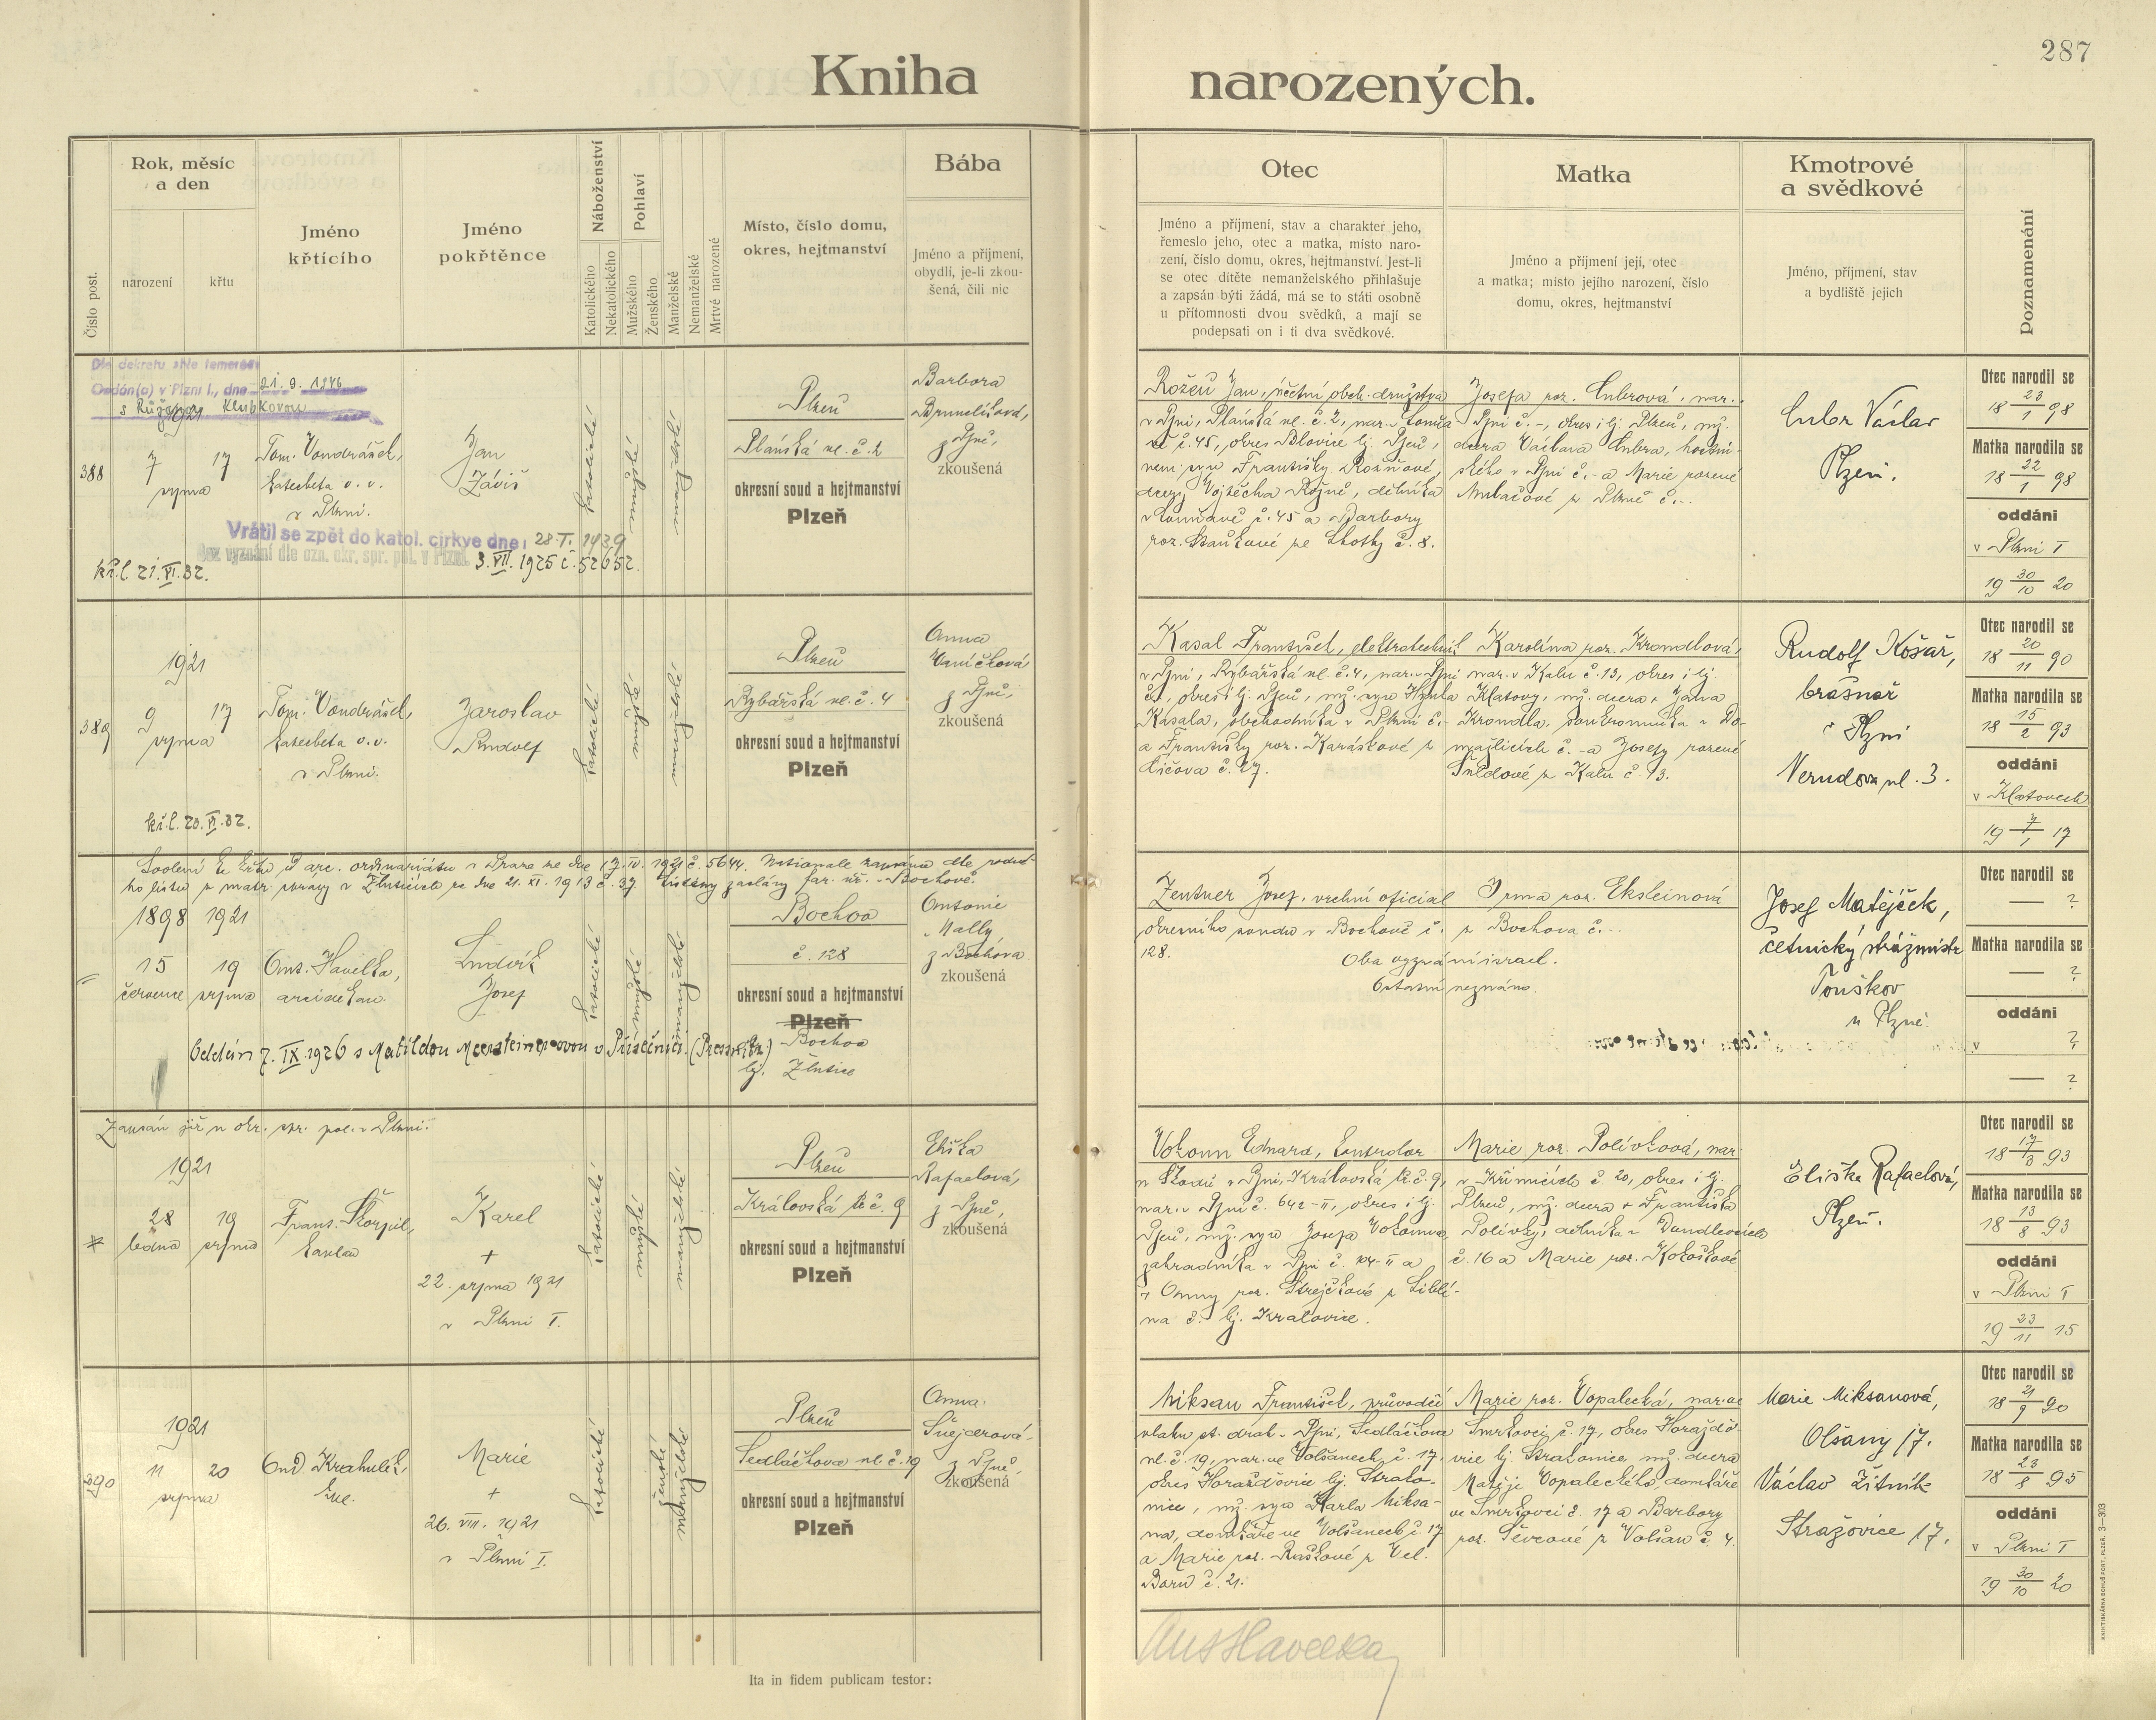 287
Kniha narozených.
Číslo post.
Rok, měsíc
a den
narození
křtu
Jméno
křtícího
Jméno
pokřtěnce
Náboženství
Katolického
Nekatolického
Pohlaví
Mužského
Ženského
Manželské
Nemanželské
Mrtvě narozené
Místo, číslo domu,
okres, hejtmanství
Bába
Jméno a příjmení,
obydlí, je-li zkou-
šená, čili nic
Otec
Jméno a příjmení, stav a charakter jeho,
řemeslo jeho, otec a matka, místo naro-
zení, číslo domu, okres, hejtmanství. Jest-li
se otec dítěte nemanželského přihlašuje
a zapsán býti žádá, má se to státi osobně
u přítomnosti dvou svědků, a mají se
podepsati on i ti dva svědkové.
Matka
Jméno a příjmení její, otec
a matka; místo jejího narození, číslo
domu, okres, hejtmanství
Kmotrové
a svědkové
Jméno, příjmení, stav
a bydliště jejich
Poznamenání
Oddán(a) v Plzni I., dne 21. 9. 1946
s Růženou Klubkovou
1921
388
7
17
srpna
Tom. Vondrášek,
katecheta v. v.
v Plzni.
Jan
Záviš
katolické
mužské
manželské
Plzeň
Plaňská ul. č. 2
okresní soud a hejtmanství
Plzeň
Barbora
z Plzně,
zkoušená
Vrátil se zpět do katol. církve dne: 28.I. 1939
Bez vyznání dle ozn. okr. spr. pol. v Plzni. 3.VII. 1925 č. 52652.
kř.l. 21.VI.32.
Rožeň Jan, účetní obch. družstva
v Plzni, Plaňská ul. č. 2, nar. v
č. 45, okres Blovice lj. Plzeň,
nem. syn Františky Rožňové,
dcery Vojtěcha Rožně, dělníka
č. 45 a Barbory
roz. ze Lhotky č. 8.
Josefa roz. Lubrová, nar.
v Plzni č. -, okres i lj. Plzeň, mž.
dcera Václava Lubra, hostin-
ského v Plzni č. - a Marie rozené
z Plzně č. -.
Lubr Václav
Plzeň.
Otec narodil se
18 23/1 98
Matka narodila se
18 22/1 98
oddáni
v Plzni I
19 30/10 20
1921
389
9
17
srpna
Tom. Vondrášek,
katecheta v. v.
v Plzni.
Jaroslav
Rudolf
katolické
mužské
manželské
Plzeň
Rybářská ul. č. 4
okresní soud a hejtmanství
Plzeň
Anna
Vaníčková
z Plzně,
zkoušená
kř.l. 20.VI.32.
Kasal František, elektrotechnik
v Plzni, Rybářská ul. č. 4, nar. v Plzni
č. 1, okres i lj. Plzeň, mž. syn Hynka
Kasala, obchodníka v Plzni č. -
a Františky roz. Karáskové z
č. 27.
Karolína roz. Krondlová,
nar. v Kalu č. 13, okres i lj.
Klatovy, mž. dcera + Jana
Krondla, soukromníka v Do-
mažlicích č. - a Josefy rozené
z Kalu č. 13.
Rudolf Košař,
brašnář
v Plzni
Nerudova ul. 3.
Otec narodil se
18 20/11 90
Matka narodila se
18 15/2 93
oddáni
v Klatovech
19 7/1 17
Svolení ke křtu od arc. ordinariátu v Praze ze dne 17.IV. 1921 č. 5644. Nationale zapsána dle rodné-
ho listu z matr. správy v Žluticích ze dne 21. XI. 1913 č. 37. zaslány far. úř. v Bochově.
1898
1921
15
19
července
srpna
Ant. Havelka,
arciděkan.
Ludvík
Josef
katolické
mužské
manželské
Bochov
č. 128
okresní soud a hejtmanství
Plzeň
Bochov
lj. Žlutice
Antonie
Nally
z Bochova
zkoušená
Oddán 7. IX. 1926 s Matildou v Přísečnici. (Pressnitz)
Zentner Josef, vrchní oficiál
okresního soudu v Bochově č.
128.
Irma roz. Eksteinová
z Bochova č. -
Oba vyznání israel.
Ostatní neznámo.
Josef Matějíček,
četnický strážmistr
Touškov
u Plzně.
Otec narodil se
— ?
Matka narodila se
— ?
oddáni
v ?
— ?
Zapsán již u okr. spr. pol. v Plzni.
1921
28
19
ledna
srpna
Frant. Škorpil,
kaplan
Karel
+
22. srpna 1921
v Plzni I.
katolické
mužské
manželské
Plzeň
Královská tř. č. 9
okresní soud a hejtmanství
Plzeň
Eliška
Rafaelová,
z Plzně,
zkoušená
Vokoun Eduard, kontrolor
u Škodů v Plzni, Královská tř. č. 9,
nar. v Plzni č. 642-II, okres i lj.
Plzeň, mž. syn Josefa Vokouna,
zahradníka v Plzni č. -II a
+ Anny roz. Strejčkové z Libli-
na č. lj. Kralovice.
Marie roz. Polívková, nar.
v Křimicích č. 20, okres i lj.
Plzeň, mž. dcera + Františka
Polívky, dělníka v
č. 16 a Marie roz. Kokoškové
Eliška Rafaelová,
Plzeň.
Otec narodil se
18 17/3 93
Matka narodila se
18 13/8 93
oddáni
v Plzni I
19 23/11 15
1921
390
11
20
srpna
Ond. Krahulík,
Marie
+
26. VIII. 1921
v Plzni I.
katolické
ženské
manželské
Plzeň
Sedláčkova ul. č. 19
okresní soud a hejtmanství
Plzeň
Anna
Šnejdrová
z Plzně,
zkoušená
Miksan František, průvodčí
vlaku st. drah v Plzni, Sedláčkova
ul. č. 19, nar. ve Volšanech č. 17,
okres Horažďovice lj. Strako-
nice, mž. syn Karla Miksa-
na, domkáře ve Volšanech č. 17
a Marie roz. Raškové z Vel.
Boru č. 21.
Marie roz. Vopalecká, nar. ve
Smrkovci č. 17, okres Horažďo-
vice lj. Strakonice, mž. dcera
Matěje Vopaleckého, domkáře
ve Smrkovci č. 17 a Barbory
roz. Ševcové z Volšan č. 4.
Marie Miksanová,
Olšany 17.
Václav Žitník
Stražovice 17.
Otec narodil se
18 21/9 90
Matka narodila se
18 23/8 95
oddáni
v Plzni I
19 30/10 20
Ant Havelka
Ita in fidem publicam testor: